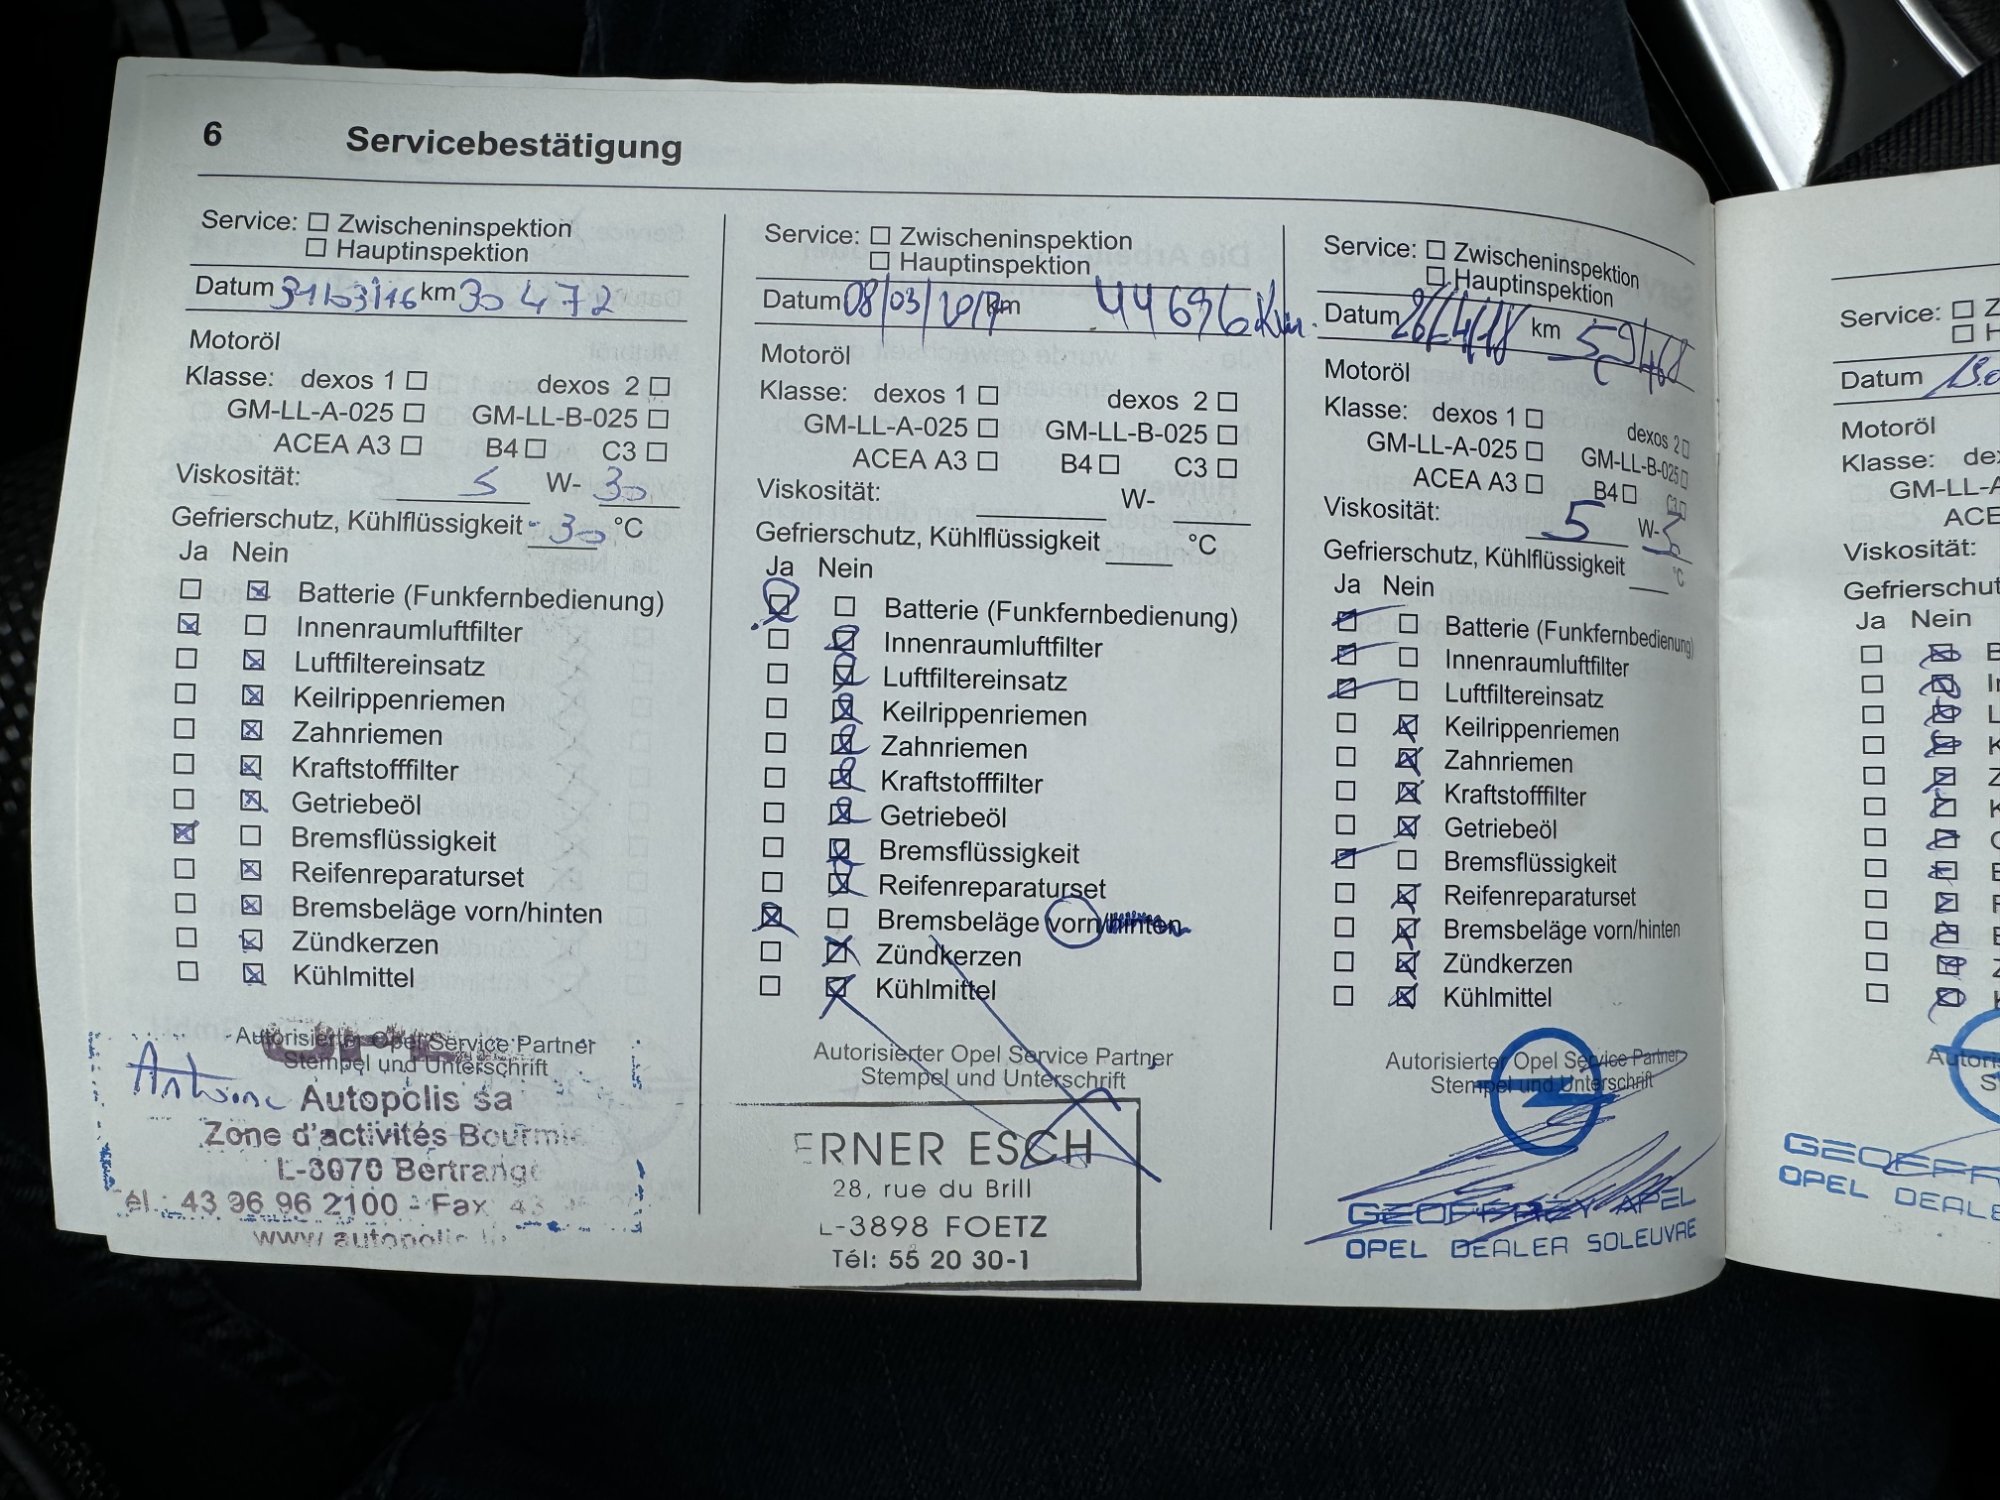 6 Servicebestätigung
Service: Zwischeninspektion
Hauptinspektion
Datum 31/03/16 km 30 472
Motoröl
Klasse: dexos 1 dexos 2
GM-LL-A-025 GM-LL-B-025
ACEA A3 B4 C3
Viskosität: 5 W- 30
Gefrierschutz, Kühlflüssigkeit -30 °C
Ja Nein
Batterie (Funkfernbedienung)
Innenraumluftfilter
Luftfiltereinsatz
Keilrippenriemen
Zahnriemen
Kraftstofffilter
Getriebeöl
Bremsflüssigkeit
Reifenreparaturset
Bremsbeläge vorn/hinten
Zündkerzen
Kühlmittel
Autorisierter Opel Service Partner
Stempel und Unterschrift
OPEL
Antoine
Autopolis sa
Zone d'activités Bourmi
L-8070 Bertrange
él.: 43 96 96 2100 - Fax 43
www autopolis.l
Service: Zwischeninspektion
Hauptinspektion
Datum 08/03/2017 km 44696 Km.
Motoröl
Klasse: dexos 1 dexos 2
GM-LL-A-025 GM-LL-B-025
ACEA A3 B4 C3
Viskosität: W-
Gefrierschutz, Kühlflüssigkeit °C
Ja Nein
Batterie (Funkfernbedienung)
Innenraumluftfilter
Luftfiltereinsatz
Keilrippenriemen
Zahnriemen
Kraftstofffilter
Getriebeöl
Bremsflüssigkeit
Reifenreparaturset
Bremsbeläge vorn/hinten
Zündkerzen
Kühlmittel
Autorisierter Opel Service Partner
Stempel und Unterschrift
ERNER ESCH
28, rue du Brill
L-3898 FOETZ
Tél: 55 20 30-1
Service: Zwischeninspektion
Hauptinspektion
Datum 26/4/18 km
Motoröl
Klasse: dexos 1 dexos 2
GM-LL-A-025 GM-LL-B-025
ACEA A3 B4 C3
Viskosität: 5 W-30
Gefrierschutz, Kühlflüssigkeit °C
Ja Nein
Batterie (Funkfernbedienung)
Innenraumluftfilter
Luftfiltereinsatz
Keilrippenriemen
Zahnriemen
Kraftstofffilter
Getriebeöl
Bremsflüssigkeit
Reifenreparaturset
Bremsbeläge vorn/hinten
Zündkerzen
Kühlmittel
Autorisierter Opel Service Partner
Stempel und Unterschrift
GEOFFREY APEL
OPEL DEALER SOLEUVRE
Service: Z
H
Datum
Motoröl
Klasse: dex
GM-LL-A
ACE
Viskosität:
Gefrierschut
Ja Nein
B
I
L
K
Z
K
G
B
R
B
Z
K
Autoris
S
GEOFFR
OPEL DEALE